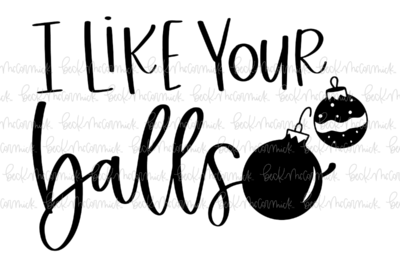 I LIKE YOUR
balls